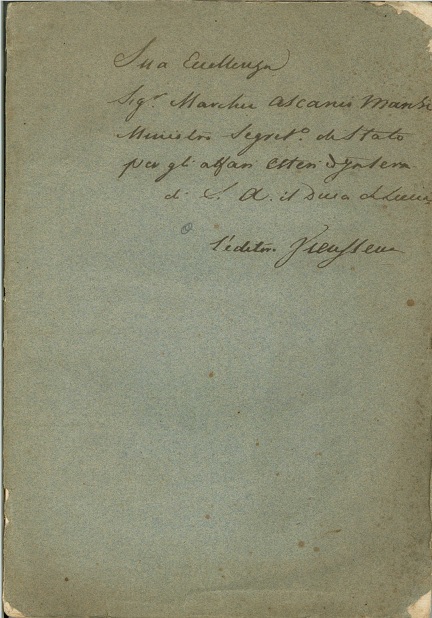 Sua Eccellenza
Sigr. Marchese Ascanio Mansi
Ministro Segreto. di Stato
per gli affari Esteri d'
di S. A. il Duca di Lucca
l'editore Vieusseux